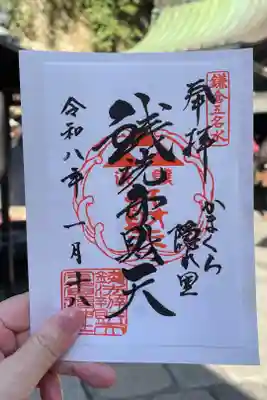 鎌倉五名水
奉拝
かまくら
隠れ里
銭洗弁財天
令和八年
一月
十八